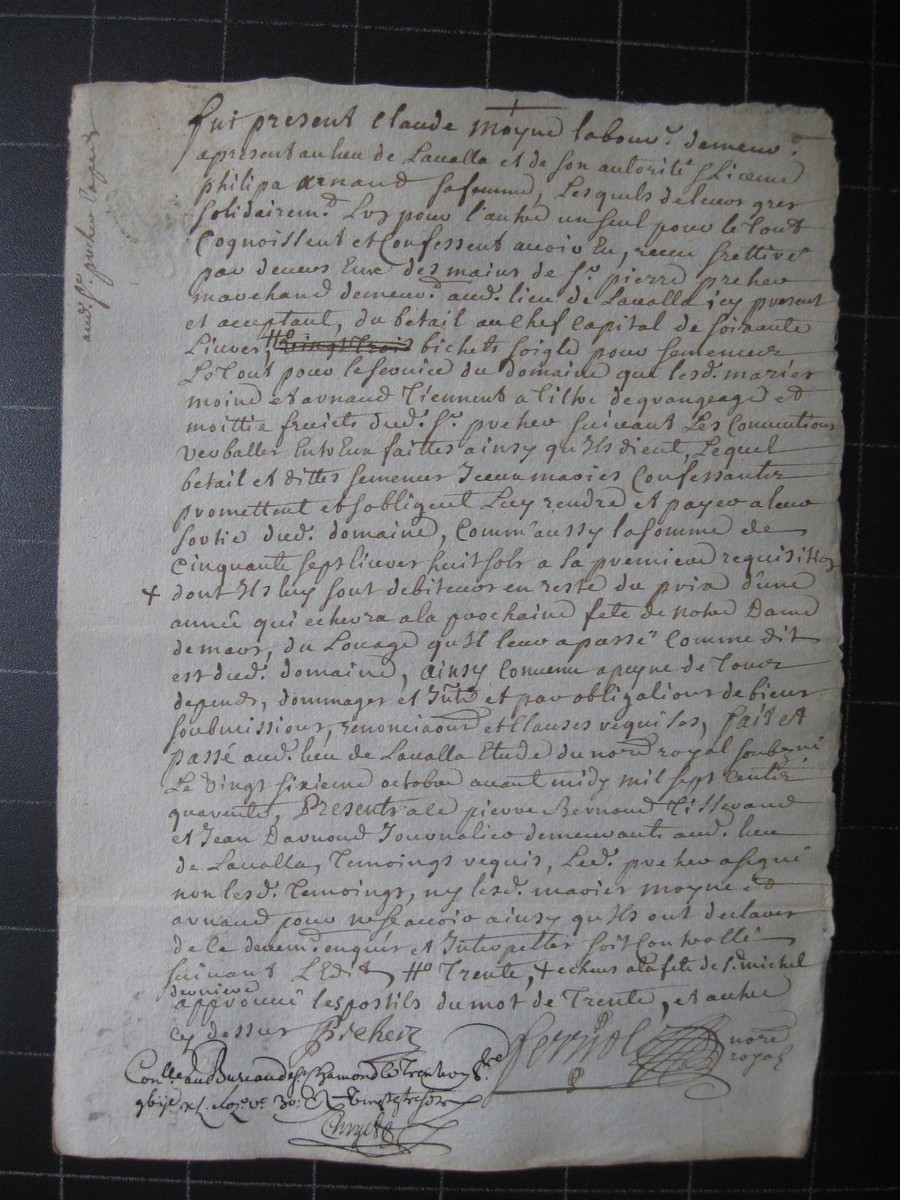 fut present Claude Moyne labour.^r demeur.^t
apresent au lieu de Lavalla et de son autorité Licence
philipa arnaud sa femme, Lesquels de leurs gres
solidairem.^t L'un pour l'autre un seul pour le tout
Cognoissent et Confessent avoir Eu, receu
par devers Eux des mains de S.^r pierre preher
marchand demeur.^t aud. lieu de Lavalla icy present
et acceptant, du betail au chef capital de soixante
Livres, #o vingt trois bichets soigle pour semences
Le tout pour le service du domaine que lesd. mariés
moine et arnaud Tiennent a titre de grangeage et
moittie fruicts dud. S.^r preher suivant Les Conventions
verballes Entr Eux faittes ainsy qu'ils dient, Lequel
betail et dittes semences Iceux maries Confessantz
promettent et s'obligent Luy rendre et payer a leur
sortie dud. domaine, Comm'aussy la somme de
cinquante sept livres huit sols a sa premiere requisition
+ dont ils luy sont debiteurs en reste du prix d'une
année qui echevra a la prochaine fete de notre Dame
de mars, du Louage qu'il leur a passé Comme dit
est dud. domaine, ainsy Convenu a peyne de tous
depends, dommages et Int^ts et par obligations de biens
soubmissions, renonciaons et Clauses requises, fait et
passé aud. lieu de Lavalla Etude du nore royal soubzné
Le vingt sixieme octobre avant midy mil sept centz
quarente, Presents a ce pierre Bernaud Tisserand
et Jean Darnoud Journalier demeurants aud. lieu
de Lavalla, Temoings requis, Led. preher a signé
non lesd. Temoings, ny lesd. maries moyne et
arnaud pour ne scavoir ainsy qu'ils ont declarer
de ce deuem.^t enquis et Interpelles soit Controllé
suivant L'Edit, #o Trente, + echeus a la fete de S.^t michel
derniere
approuvé les postils du mot de Trente, et autre
cy dessus Preher
nore
royal
Con.^lle au Bureau de S.^t Chamond le Trente
aud. S.^r preher